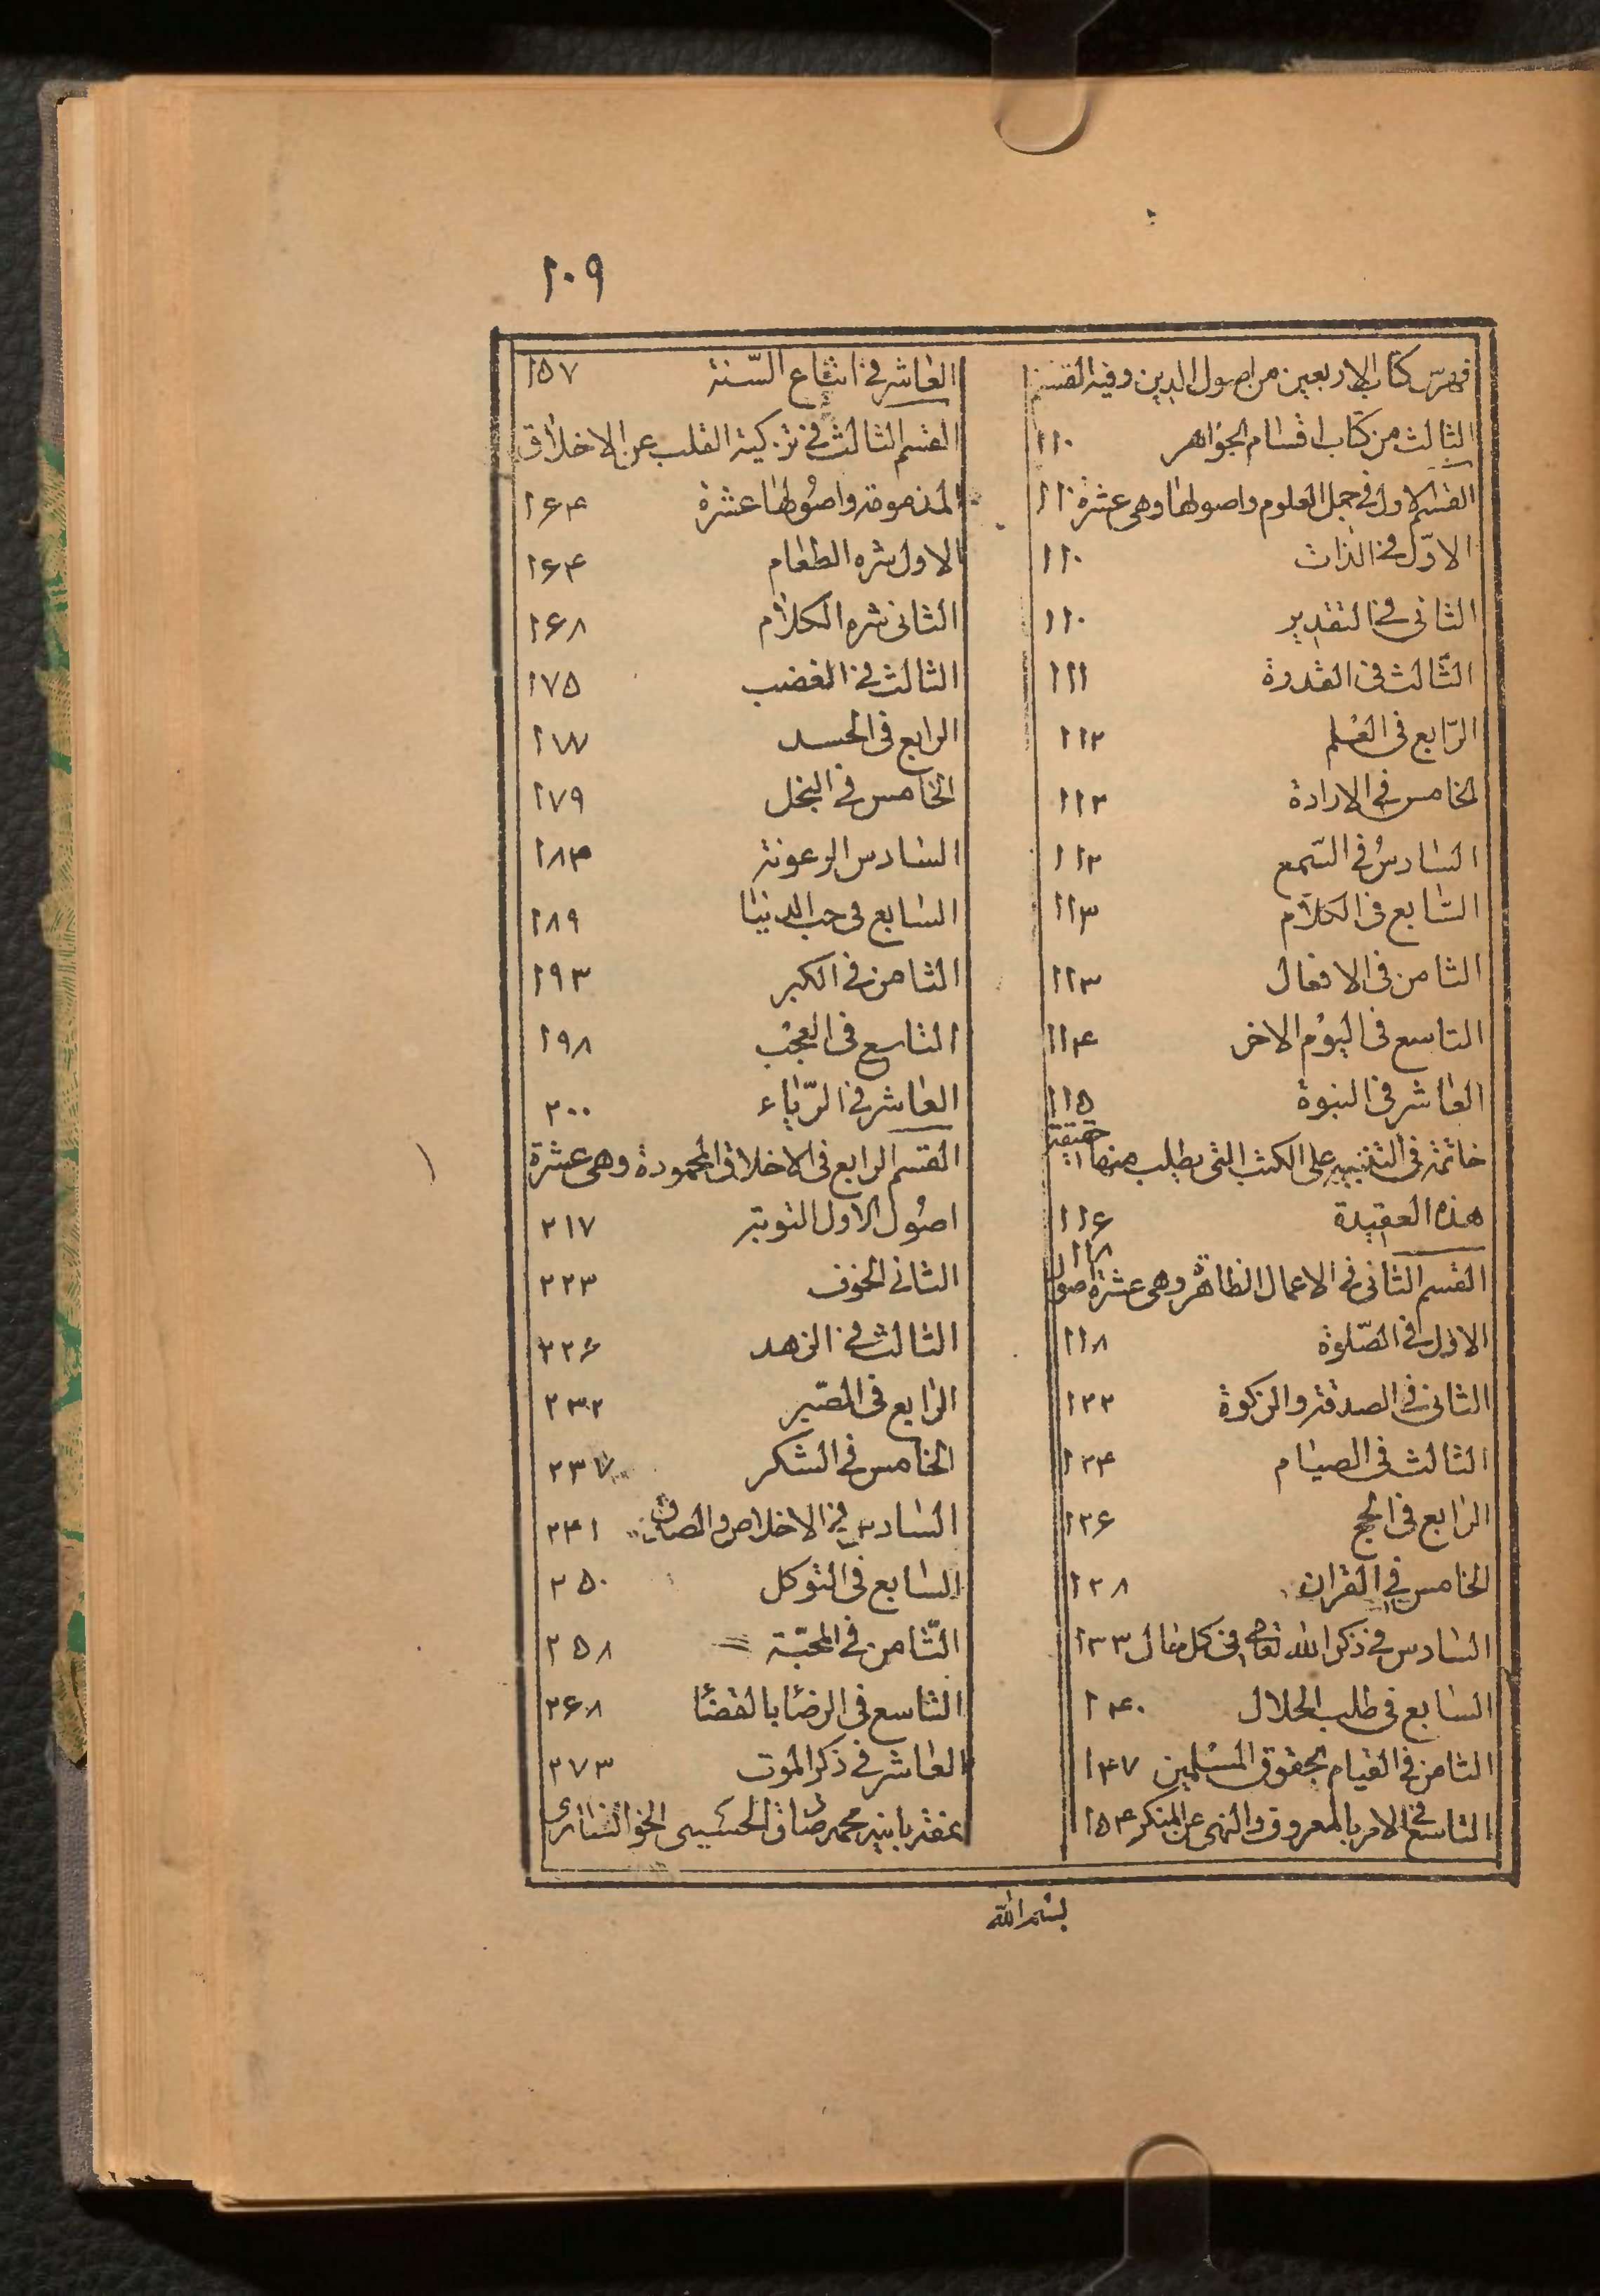 ١٠٩
فهرس كتاب الاربعين من اصول الدين وفيه القسم
الثالث من كتاب اقسام الجواهر ١١٠
القسم الاول في جمل العلوم واصولها وهي عشرة ١١٠
الاوّل في الذات ١١٠
الثانى في التقدير ١١٠
الثّالث في القدرة ١١١
الرّابع في العلم ١١٢
الخامس في الارادة ١١٢
السادس في السّمع ١١٢
السّابع في الكلام ١١٣
الثامن في الافعال ١١٣
التاسع في اليوم الاخر ١١۴
العاشر في النبوة ١١۵
خاتمة في التنبيه على الكتب التى يطلب منها حقيقة
هذه العقيدة ١١۶
القسم الثانى في الاعمال الظاهرة وهى عشرة اصول ١١٨
الاول في الصّلوة ١١٨
الثانى في الصدقة والزكوة ١٢٢
الثالث في الصيام ١٢۴
الرابع في الحج ١٢۶
الخامس في القران ١٢٨
السادس في ذكر الله تعالى في كل حال ١٣٣
السابع في طلب الحلال ١۴٠
الثامن في القيام بحقوق المسلمين ١۴٧
التاسع في الامر بالمعروف والنهى عن المنكر ١۵۴
العاشر في اتباع السّنة ١۵٧
القسم الثالث في تزكية القلب عن الاخلاق
المذمومة واصولها عشرة ١۶۴
الاول شره الطعام ١۶۴
الثانى شره الكلام ١۶٨
الثالث في الغضب ١٧۵
الرابع في الحسد ١٧٧
الخامس في البخل ١٧٩
السادس الرعونة ١٨۴
السابع في حب الدنيا ١٨٩
الثامن في الكبر ١٩٣
التاسع في العجب ١٩٨
العاشر في الرّياء ٢٠٠
القسم الرابع في الاخلاق المحمودة وهى عشرة
اصول الاول التوبة ٢١٧
الثانى الخوف ٢٢٣
الثالث في الزهد ٢٢۶
الرابع في الصّبر ٢٣٢
الخامس في الشكر ٢٣٧
السادس في الاخلاص والصدق ٢۴١
السابع في التوكل ٢۵٠
الثّامن في المحبّة ٢۵٨
التاسع في الرضا بالقضا ٢۶٨
العاشر في ذكر الموت ٢٧٣
محمد صادق الحسينى الخوانسارى
بسم الله